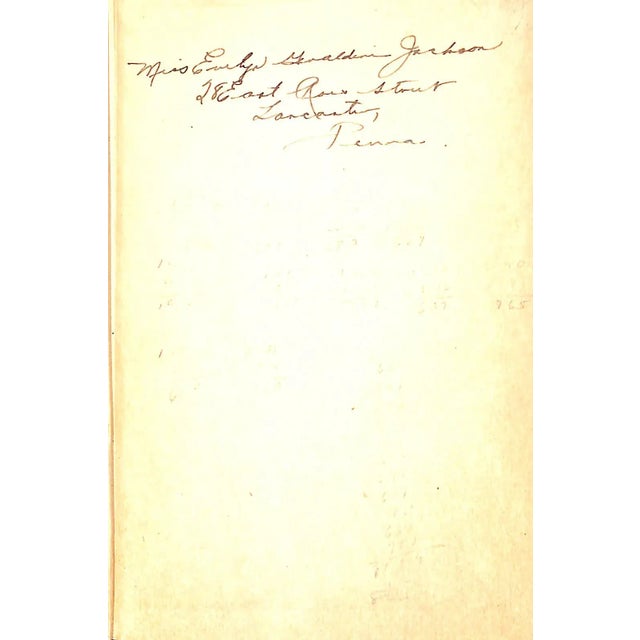 Miss Evelyn Geraldine Jackson
28 East Ross Street
Lancaster,
Penna.